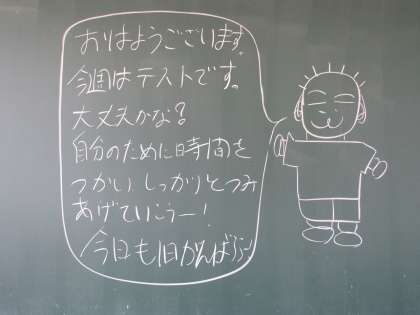 おはようございます。
今週はテストです。
大丈夫かな？
自分のために時間を
つかい しっかりとつみ
あげていこうー！
今日も1日がんばろう